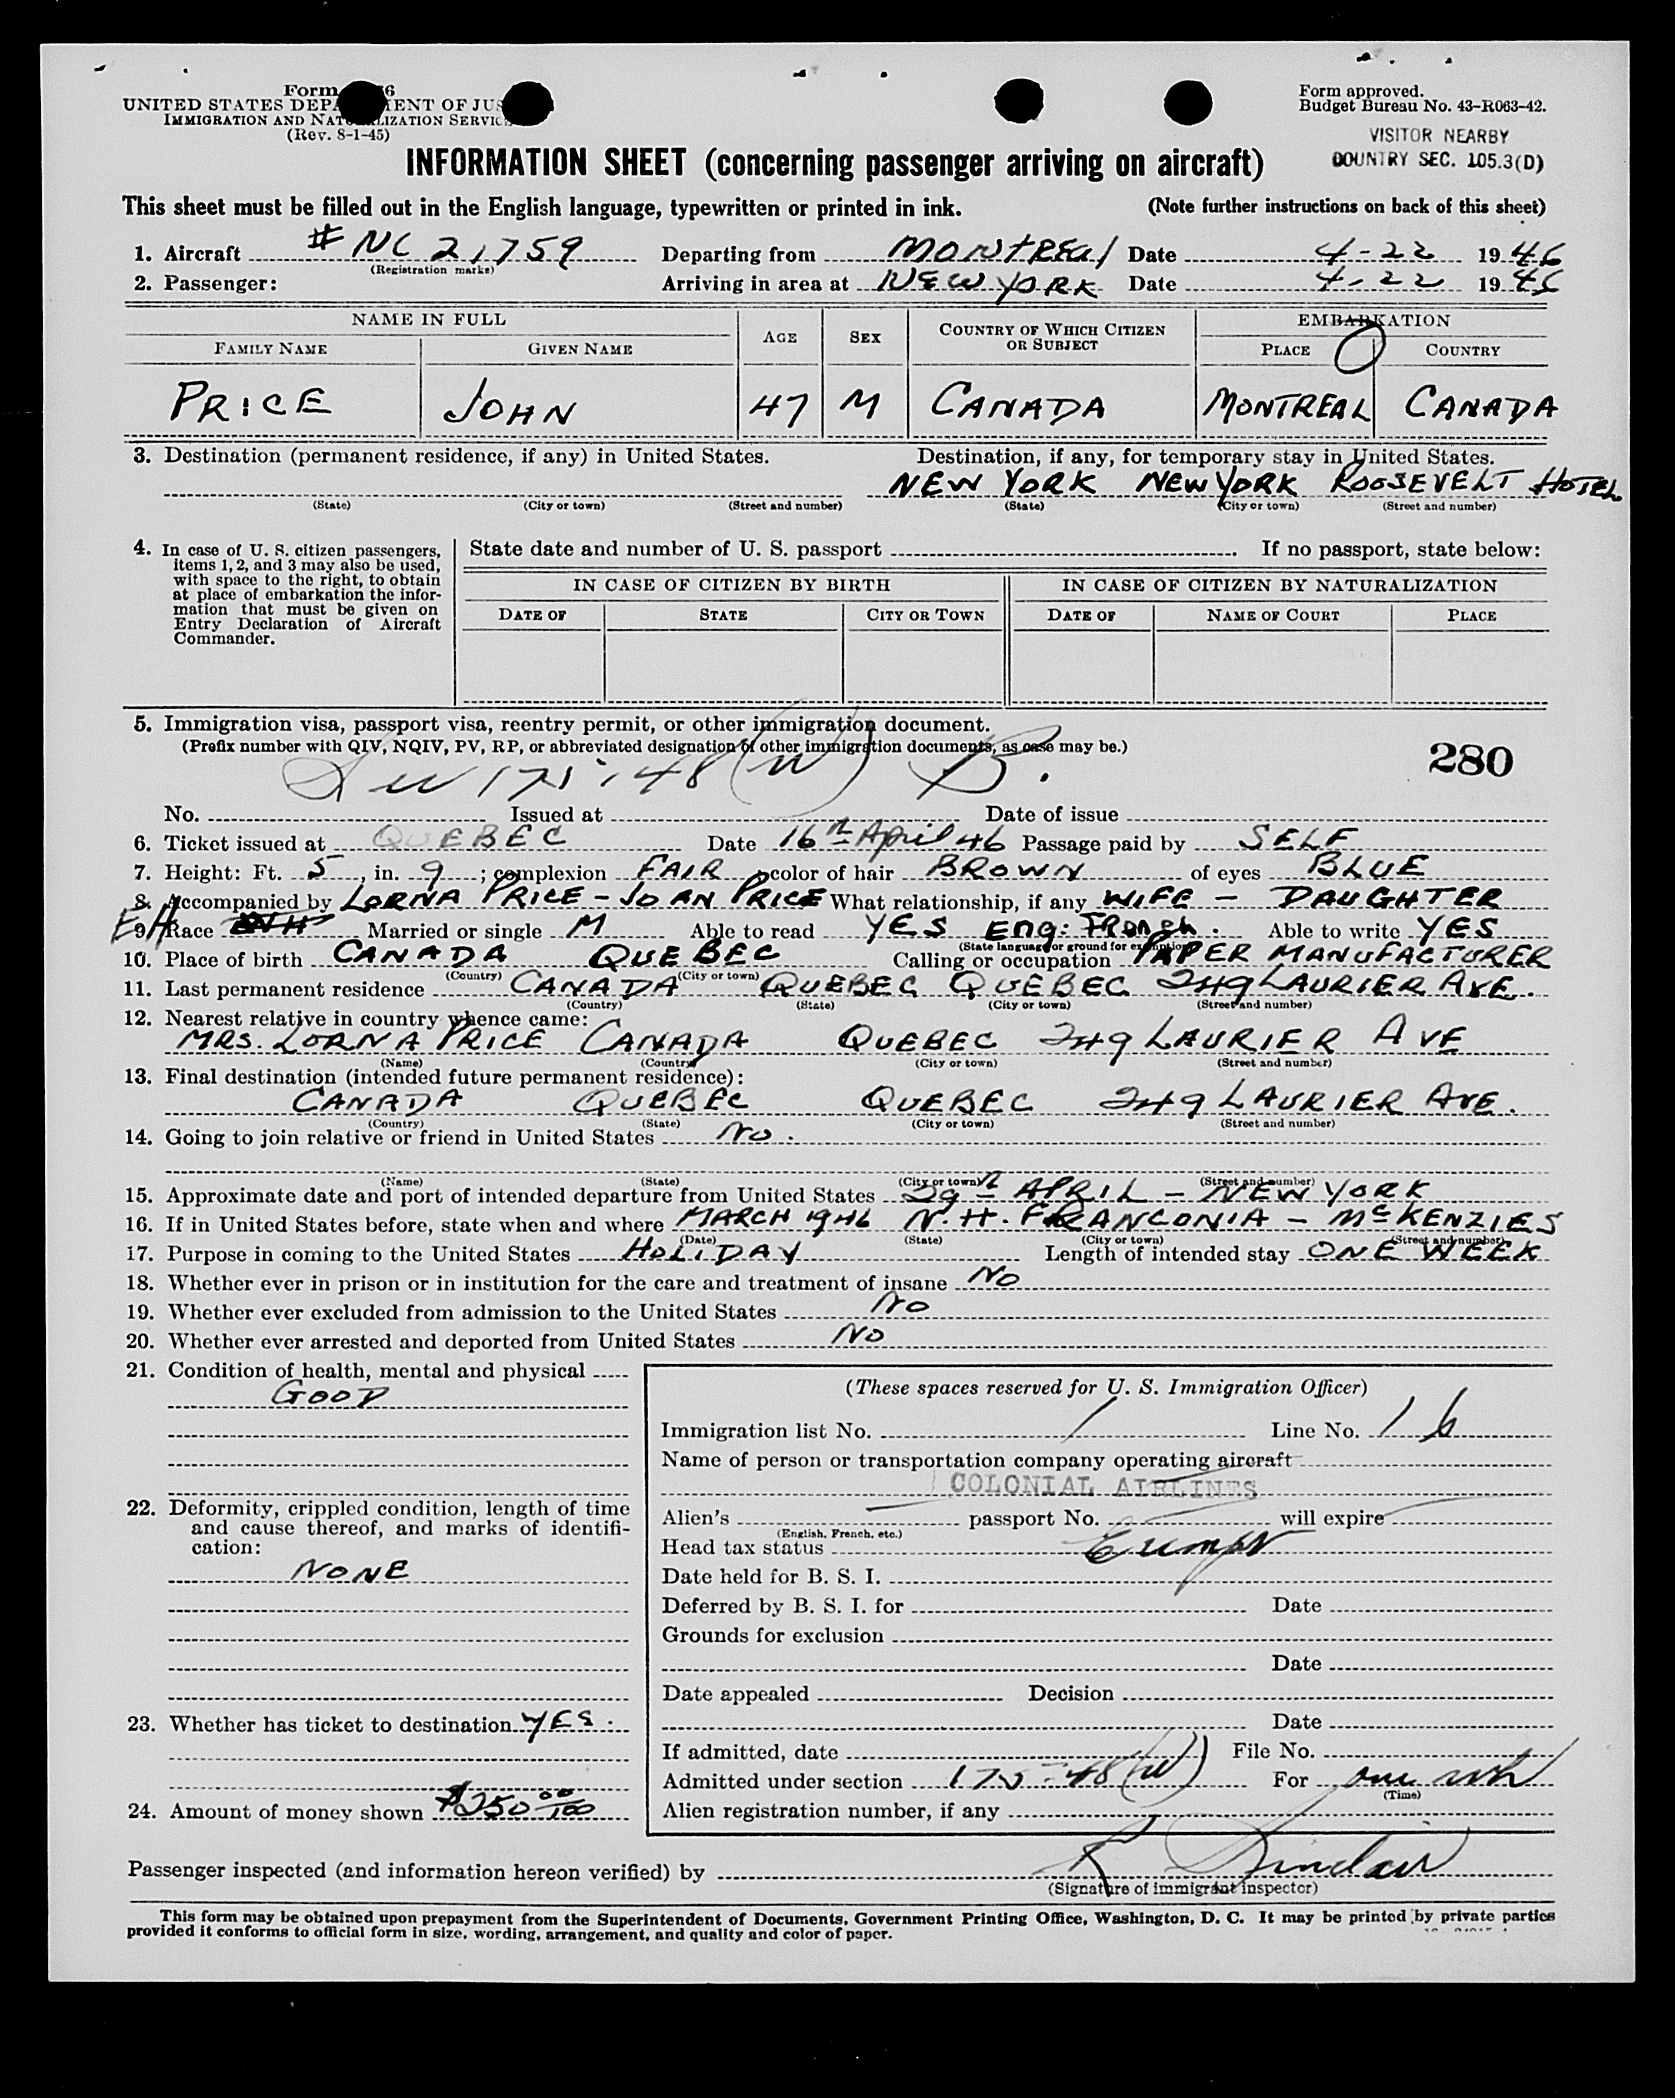 Form 6
UNITED STATES DEPA MENT OF JUS
IMMIGRATION AND NAT LIZATION SERVIC
(Rev. 8-1-45)
Form approved.
Budget Bureau No. 43-R063-42.
VISITOR NEARBY
COUNTRY SEC. 105.3(D)
INFORMATION SHEET (concerning passenger arriving on aircraft)
This sheet must be filled out in the English language, typewritten or printed in ink. (Note further instructions on back of this sheet)
1. Aircraft # NC 21759 Departing from MONTREAL Date 4-22 1946
(Registration marks)
2. Passenger: Arriving in area at NEW YORK Date 4-22 1946
NAME IN FULL AGE SEX COUNTRY OF WHICH CITIZEN OR SUBJECT EMBARKATION
FAMILY NAME GIVEN NAME PLACE COUNTRY
PRICE JOHN 47 M CANADA MONTREAL CANADA
3. Destination (permanent residence, if any) in United States. Destination, if any, for temporary stay in United States.
NEW YORK NEW YORK ROOSEVELT HOTEL
(State) (City or town) (Street and number) (State) (City or town) (Street and number)
4. In case of U. S. citizen passengers, items 1, 2, and 3 may also be used, with space to the right, to obtain at place of embarkation the information that must be given on Entry Declaration of Aircraft Commander.
State date and number of U. S. passport . If no passport, state below:
IN CASE OF CITIZEN BY BIRTH IN CASE OF CITIZEN BY NATURALIZATION
DATE OF STATE CITY OR TOWN DATE OF NAME OF COURT PLACE
5. Immigration visa, passport visa, reentry permit, or other immigration document.
(Prefix number with QIV, NQIV, PV, RP, or abbreviated designation of other immigration documents, as case may be.)
175.48 (W) B.
280
No. Issued at Date of issue
6. Ticket issued at QUEBEC Date 16th April 46 Passage paid by SELF
7. Height: Ft. 5, in. 9; complexion FAIR color of hair BROWN of eyes BLUE
8. Accompanied by LORNA PRICE - JOAN PRICE What relationship, if any WIFE - DAUGHTER
9. Race Married or single M Able to read YES Eng: French. Able to write YES
(State language or ground for exemption)
10. Place of birth CANADA QUEBEC Calling or occupation PAPER MANUFACTURER
(Country) (City or town)
11. Last permanent residence CANADA QUEBEC QUEBEC 249 LAURIER AVE.
(Country) (State) (City or town) (Street and number)
12. Nearest relative in country whence came:
MRS. LORNA PRICE CANADA QUEBEC 249 LAURIER AVE
(Name) (Country) (City or town) (Street and number)
13. Final destination (intended future permanent residence):
CANADA QUEBEC QUEBEC 249 LAURIER AVE.
(Country) (State) (City or town) (Street and number)
14. Going to join relative or friend in United States NO.
(Name) (State) (City or town) (Street and number)
15. Approximate date and port of intended departure from United States 29th APRIL - NEW YORK
16. If in United States before, state when and where MARCH 1946 N.H. FRANCONIA - McKENZIES
(Date) (State) (City or town) (Street and number)
17. Purpose in coming to the United States HOLIDAY Length of intended stay ONE WEEK
18. Whether ever in prison or in institution for the care and treatment of insane NO
19. Whether ever excluded from admission to the United States NO
20. Whether ever arrested and deported from United States NO
21. Condition of health, mental and physical
GOOD
22. Deformity, crippled condition, length of time and cause thereof, and marks of identification:
NONE
23. Whether has ticket to destination YES.
24. Amount of money shown $250 00/100
(These spaces reserved for U. S. Immigration Officer)
Immigration list No. 1 Line No. 16
Name of person or transportation company operating aircraft
COLONIAL AIRLINES
Alien's passport No. will expire
(English, French, etc.)
Head tax status Exempt
Date held for B. S. I.
Deferred by B. S. I. for Date
Grounds for exclusion
Date
Date appealed Decision
Date
If admitted, date File No.
Admitted under section 175.48 (W) For one wk
(Time)
Alien registration number, if any
Passenger inspected (and information hereon verified) by R Sinclair
(Signature of immigrant inspector)
This form may be obtained upon prepayment from the Superintendent of Documents, Government Printing Office, Washington, D. C. It may be printed by private parties
provided it conforms to official form in size, wording, arrangement, and quality and color of paper.